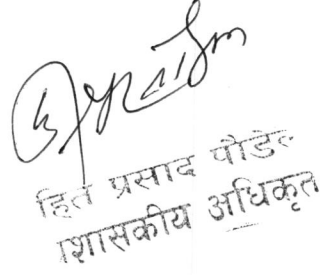 हित प्रसाद पौडेल
शासकीय अधिकृत